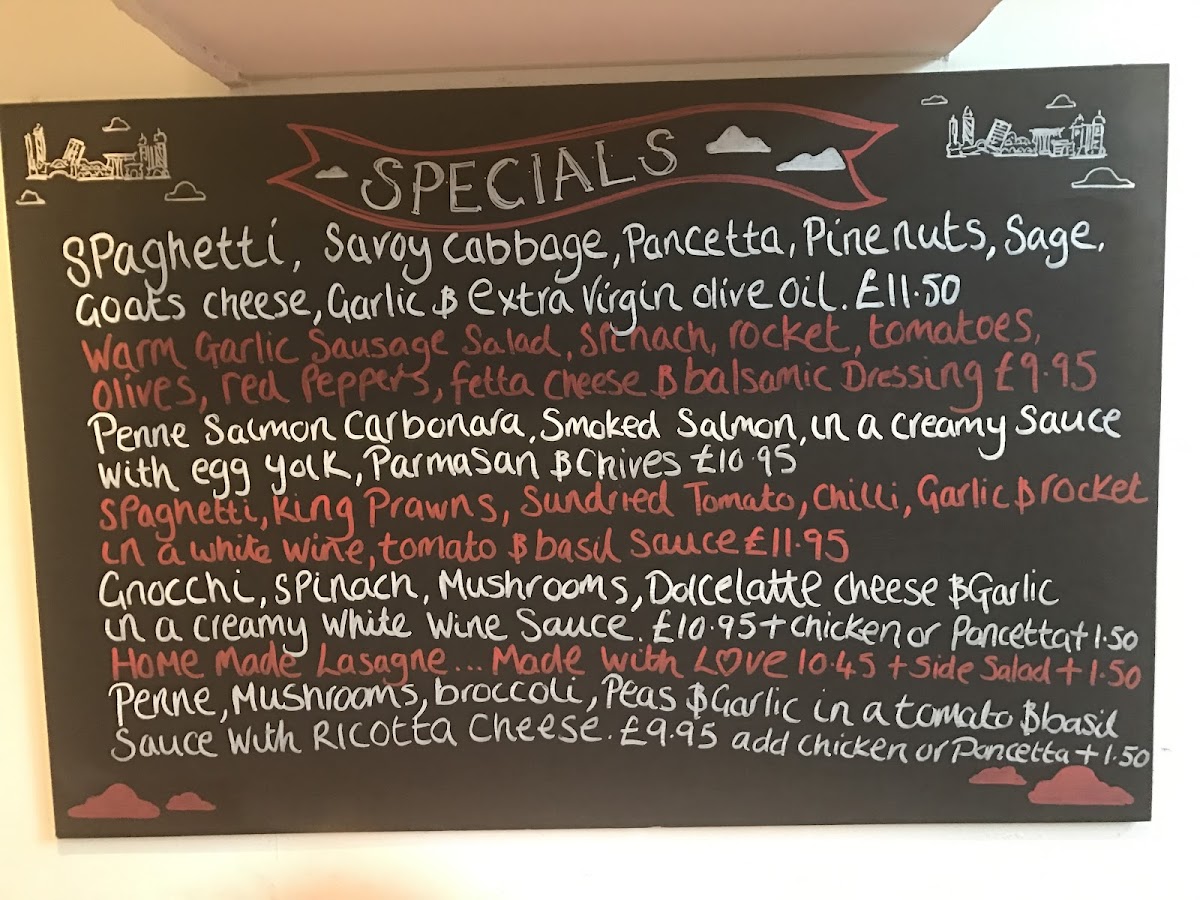 SPECIALS
Spaghetti, Savoy Cabbage, Pancetta, Pinenuts, Sage,
Goats cheese, Garlic & extra Virgin olive oil. £11.50
Warm Garlic Sausage Salad, Spinach, rocket, tomatoes,
Olives, red Peppers, fetta cheese & balsamic Dressing £9.95
Penne Salmon Carbonara, Smoked Salmon, in a creamy Sauce
with egg yolk, Parmasan & Chives £10.95
Spaghetti, King Prawns, Sundried Tomato, Chilli, Garlic & rocket
in a white wine, tomato & basil Sauce £11.95
Gnocchi, Spinach, Mushrooms, Dolcelatte cheese & Garlic
in a creamy white wine Sauce. £10.95 + chicken or Pancetta + 1.50
Home Made Lasagne... Made with L♡ve 10.45 + Side Salad + 1.50
Penne, Mushrooms, broccoli, Peas & Garlic in a tomato & basil
Sauce with Ricotta Cheese. £9.95 add chicken or Pancetta + 1.50